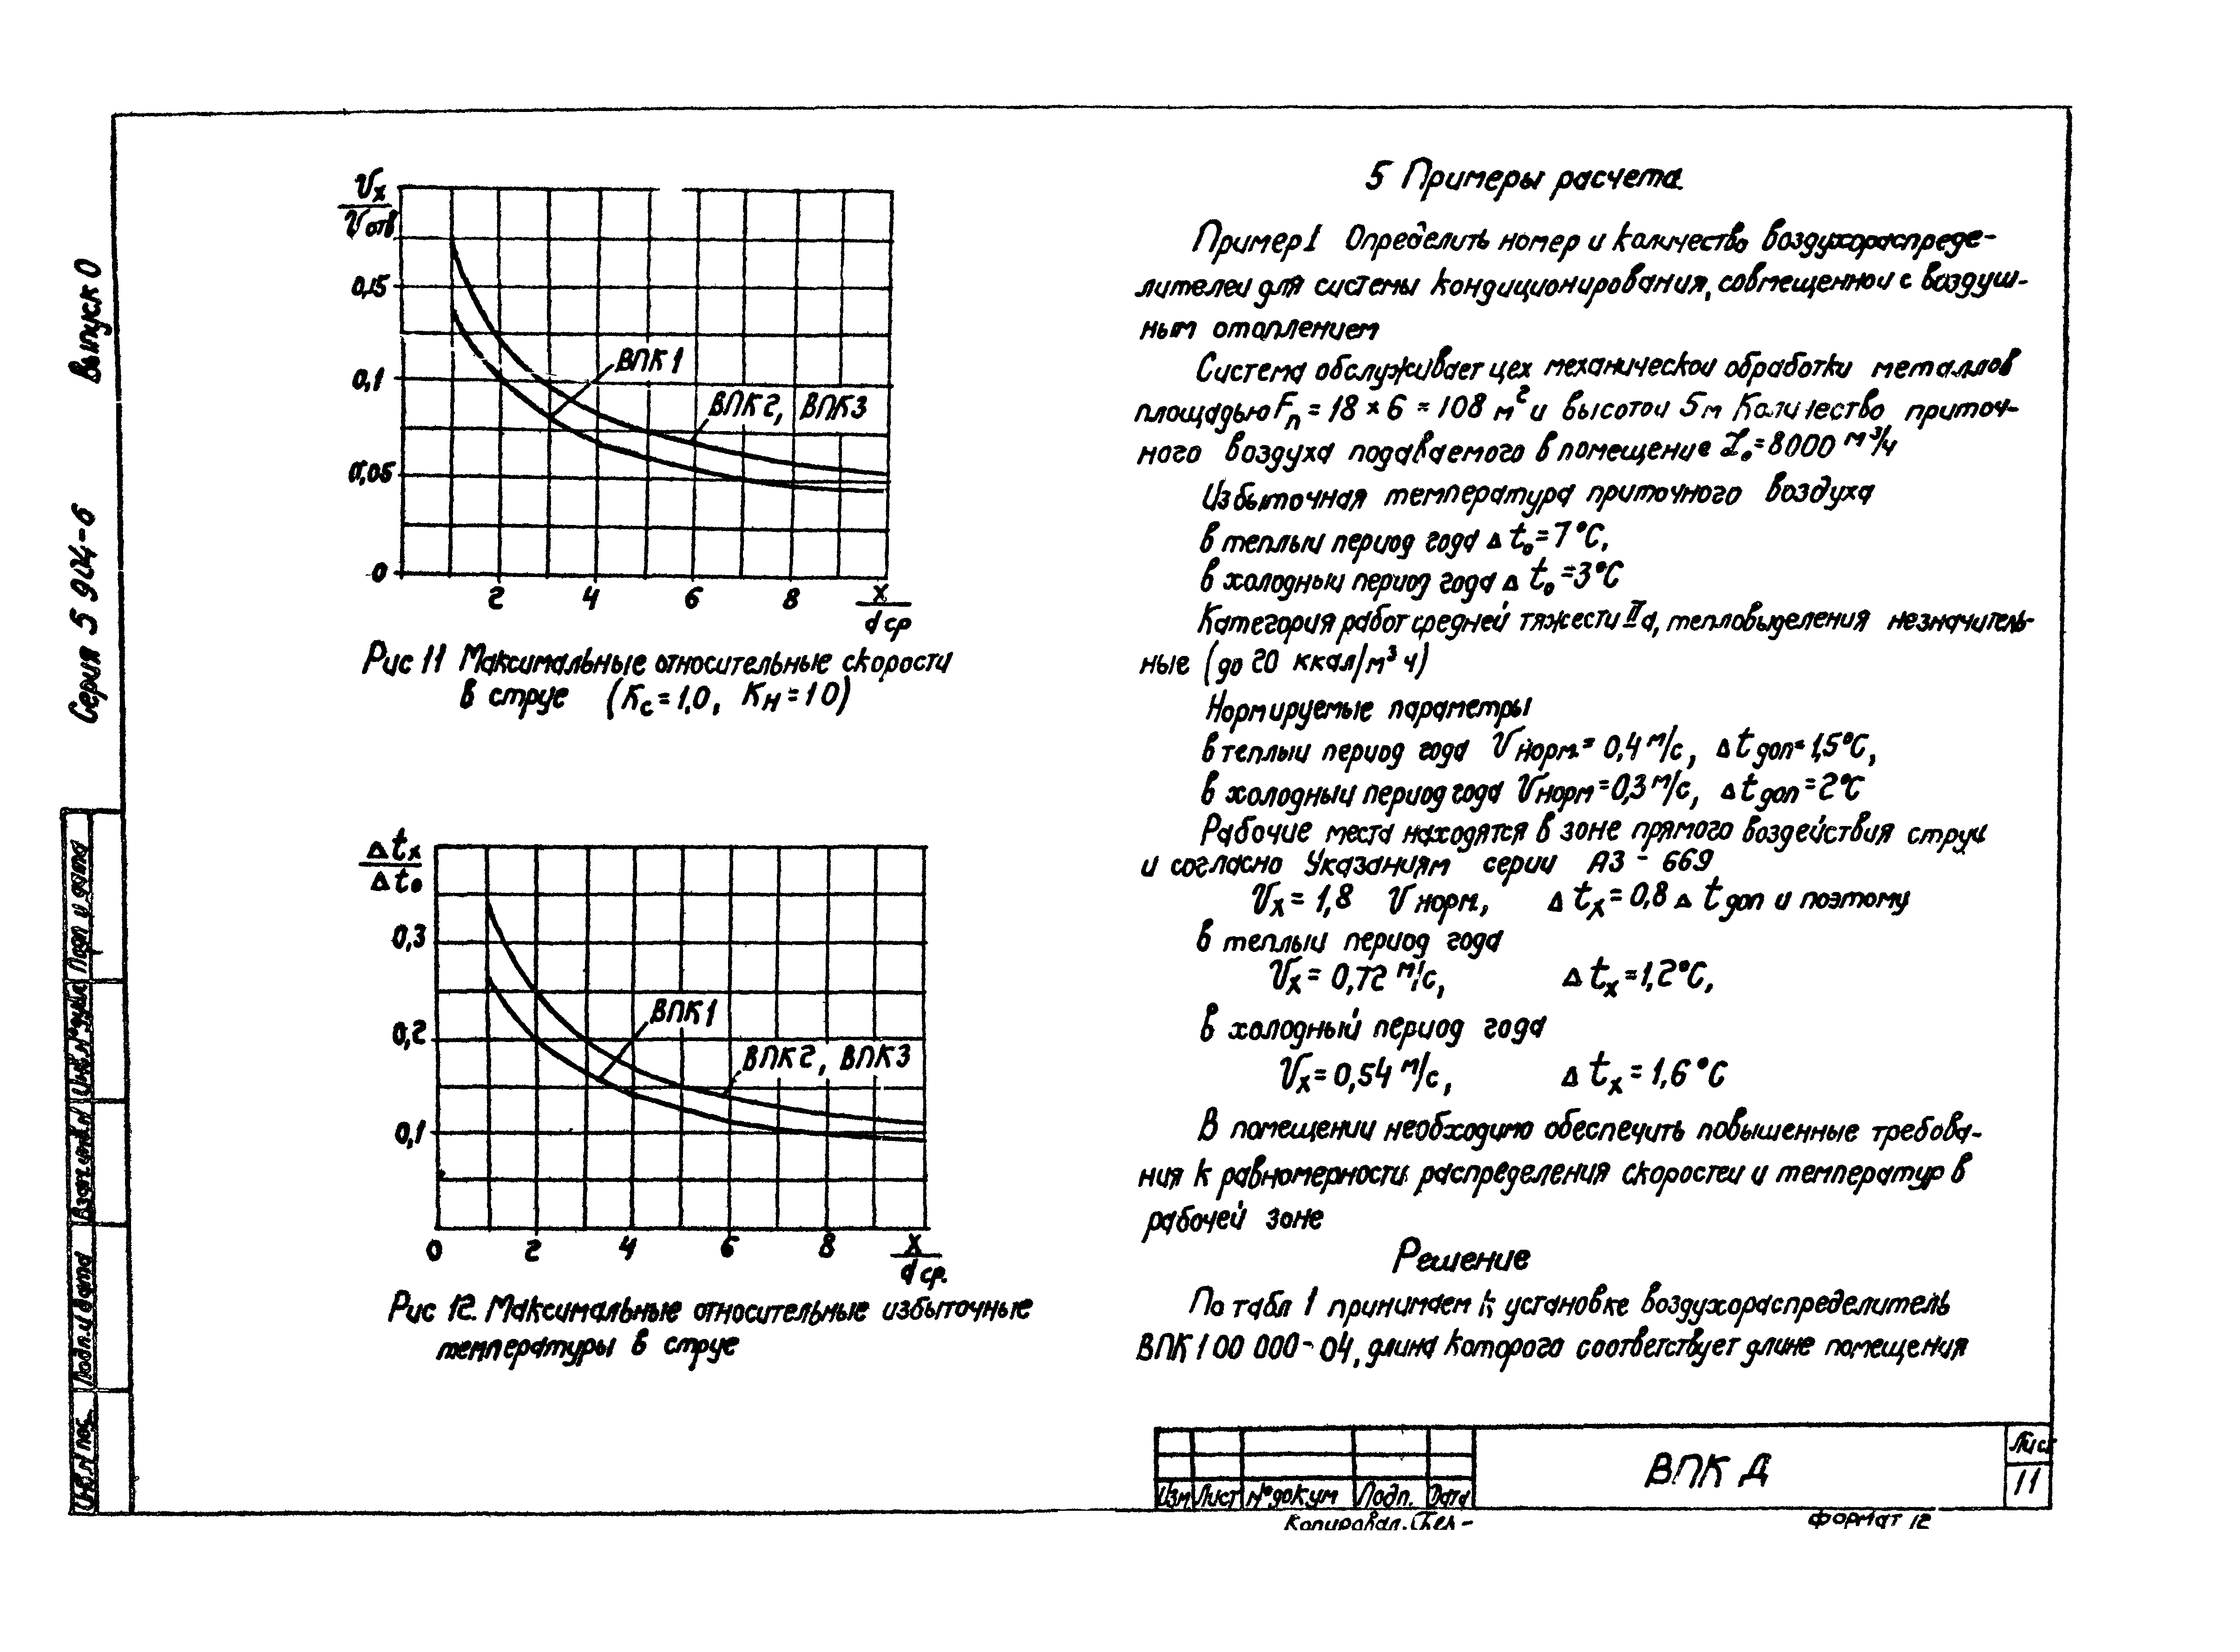 Выпуск 0
Серия 5 904-6
Vx
Vотв
0,15
0,1
0,05
0
ВПК1
ВПК2, ВПК3
2 4 6 8 x
d ср
Рис 11 Максимальные относительные скорости
в струе (Кс=1,0, Кн=10)
Δtx
Δto
0,3
0,2
0,1
ВПК1
ВПК2, ВПК3
0 2 4 6 8 x
d ср.
Рис 12. Максимальные относительные избыточные
температуры в струе
5 Примеры расчета
Пример 1 Определить номер и количество воздухораспреде-
лителей для системы кондиционирования, совмещенной с воздуш-
ным отоплением
Система обслуживает цех механической обработки металлов
площадью Fп = 18 × 6 = 108 м² и высотой 5м Количество приточ-
ного воздуха подаваемого в помещение Lо=8000 м³/ч
Избыточная температура приточного воздуха
в теплый период года Δ to=7°C,
в холодный период года Δ to=3°C
Категория работ средней тяжести IIа, тепловыделения незначитель-
ные (до 20 ккал/м³ ч)
Нормируемые параметры
в теплый период года Vнорм.= 0,4 м/с, Δt доп=1,5°C,
в холодный период года Vнорм=0,3 м/с, Δt доп=2°C
Рабочие места находятся в зоне прямого воздействия струи
и согласно Указаниям серии А3-669
Vx = 1,8 Vнорм., Δ tx = 0,8 Δ t доп и поэтому
в теплый период года
Vx = 0,72 м/с, Δ tx =1,2°C,
в холодный период года
Vx= 0,54 м/с, Δ tx = 1,6 °C
В помещении необходимо обеспечить повышенные требова-
ния к равномерности распределения скоростей и температур в
рабочей зоне
Решение
По табл 1 принимаем к установке воздухораспределитель
ВПК 1 00 000-04, длина которого соответствует длине помещения
Подп и дата
Инв.№ дубл
Взам.инв.№
Подп.и дата
Инв.№ под
Изм Лист № докум Подп. Дата
ВПК Д
Лист
11
Копировал.
Формат 12